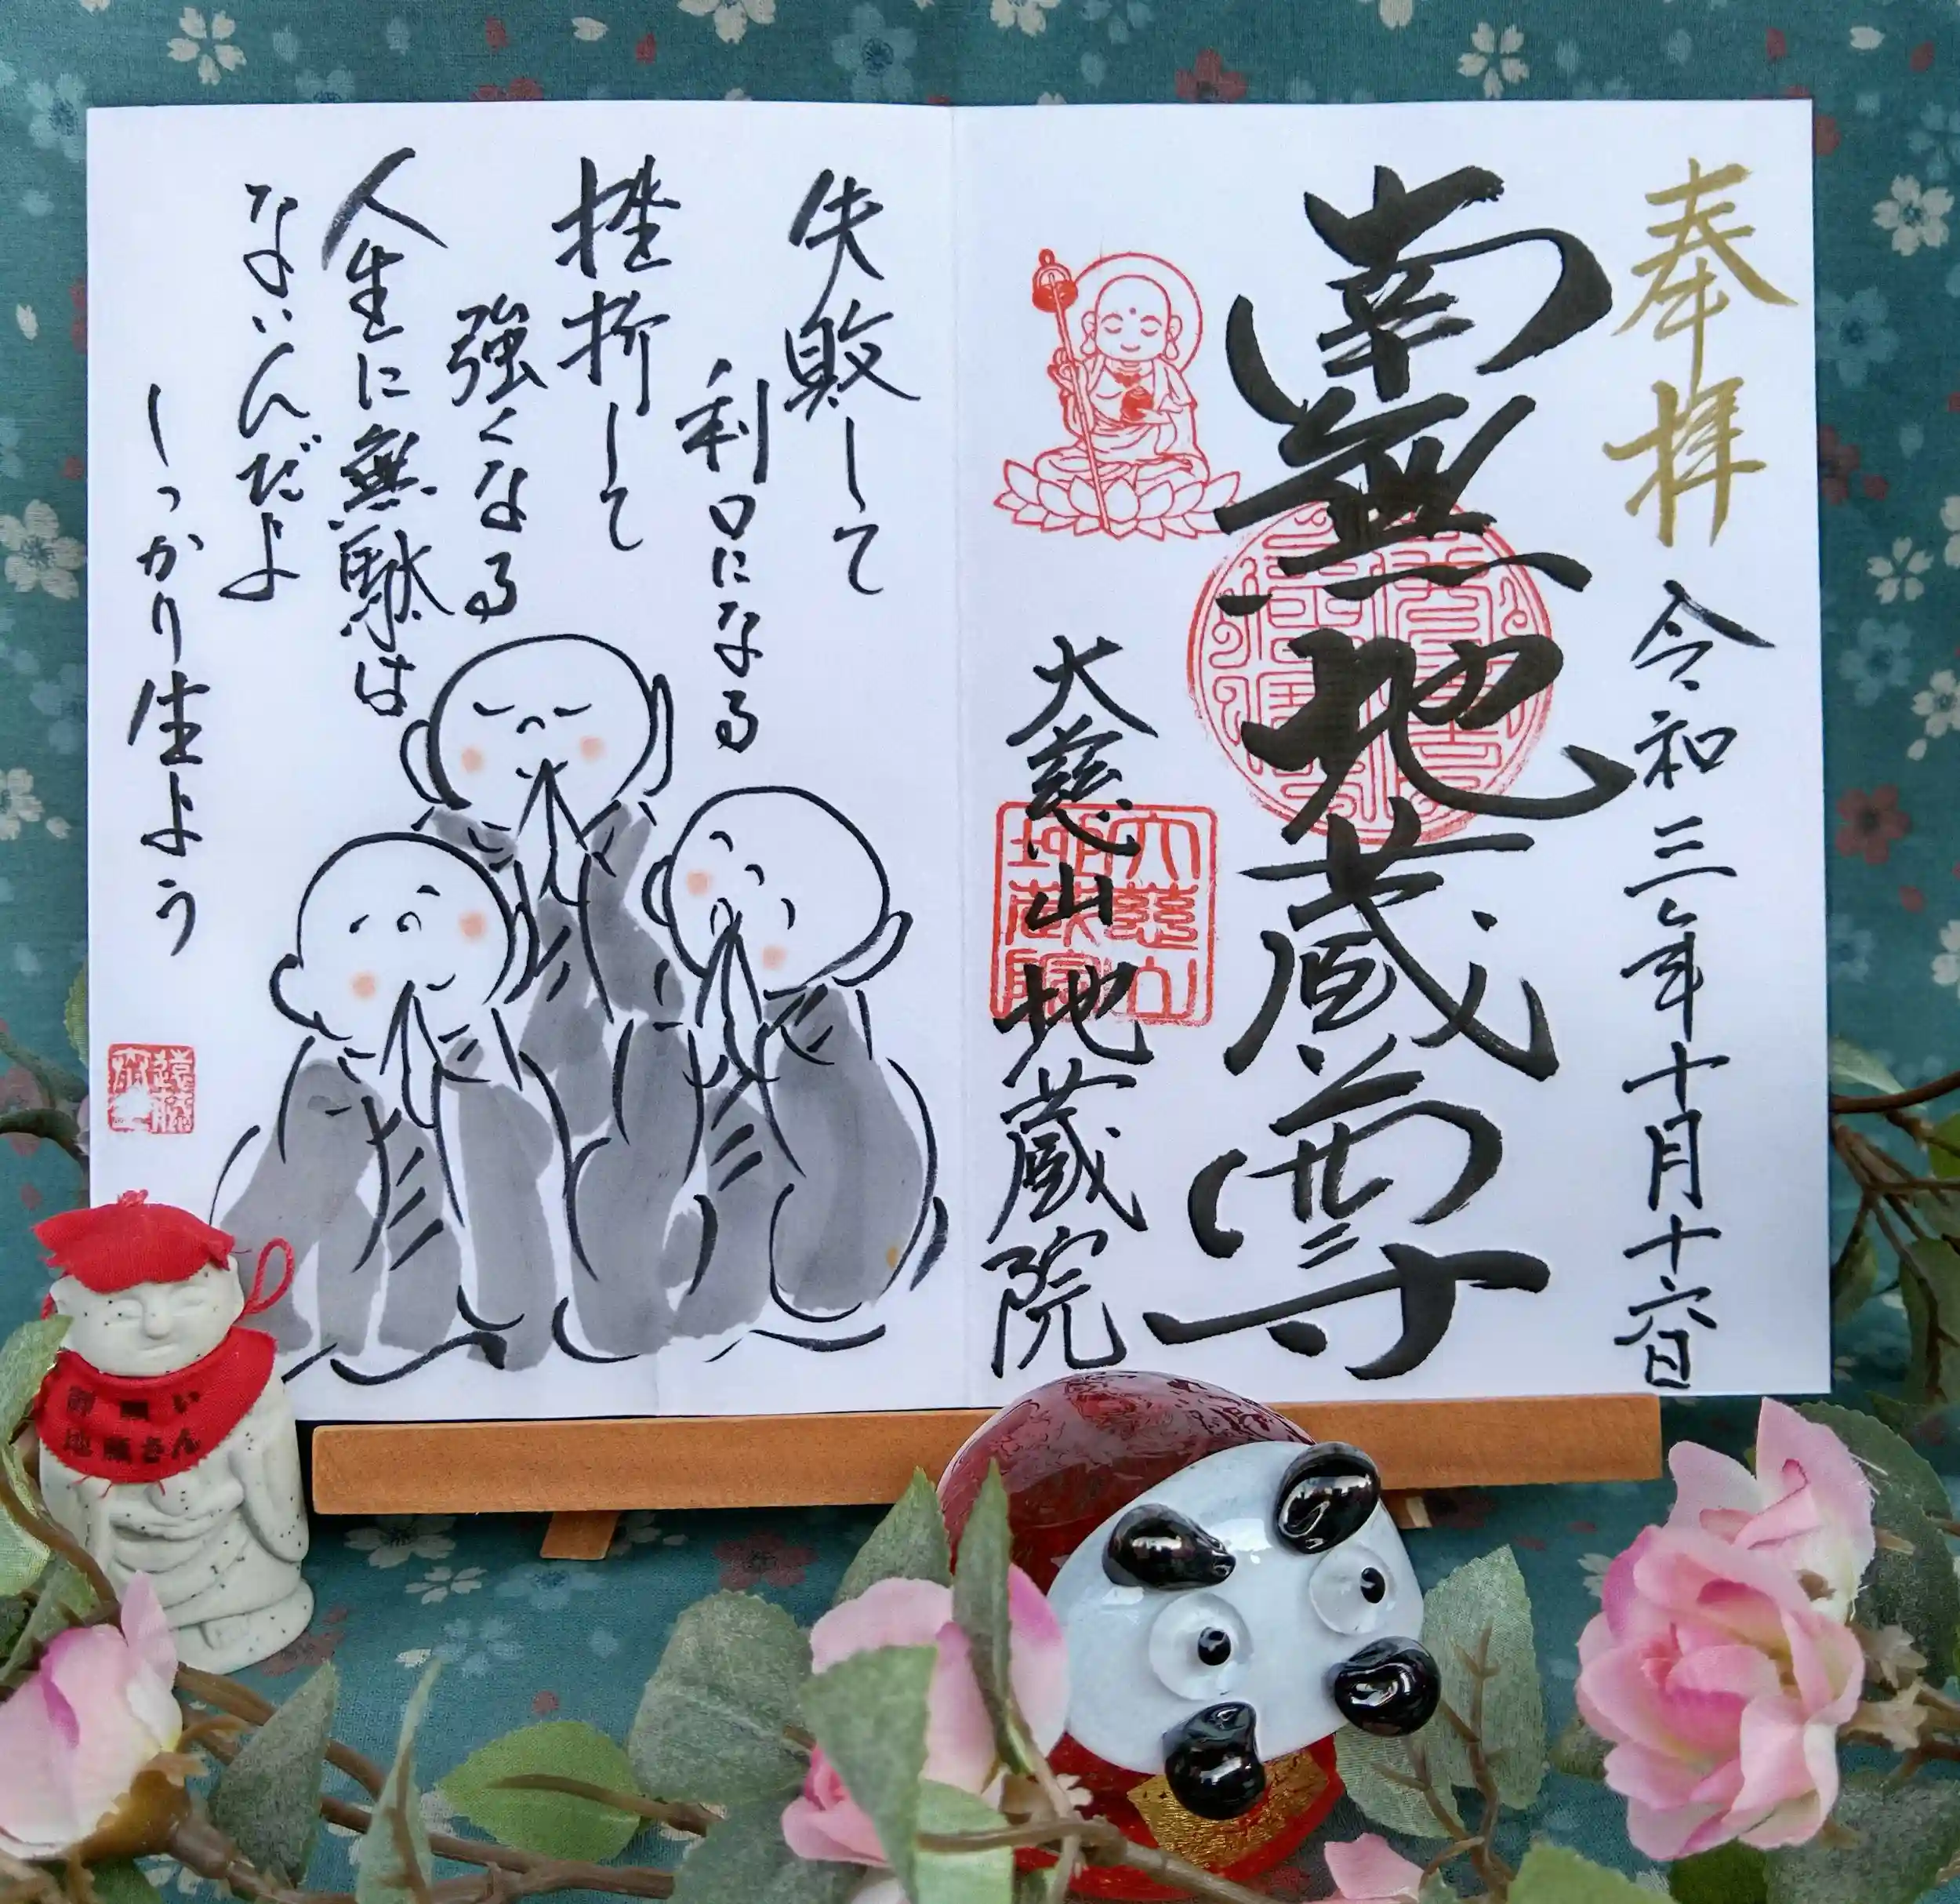 奉拝
令和三年十月十六日
南無地蔵尊
大慈山地蔵院
大慈山
地蔵院
失敗して
利口になる
挫折して
強くなる
人生に無駄は
ないんだよ
しっかり生よう
御願い
地蔵さん